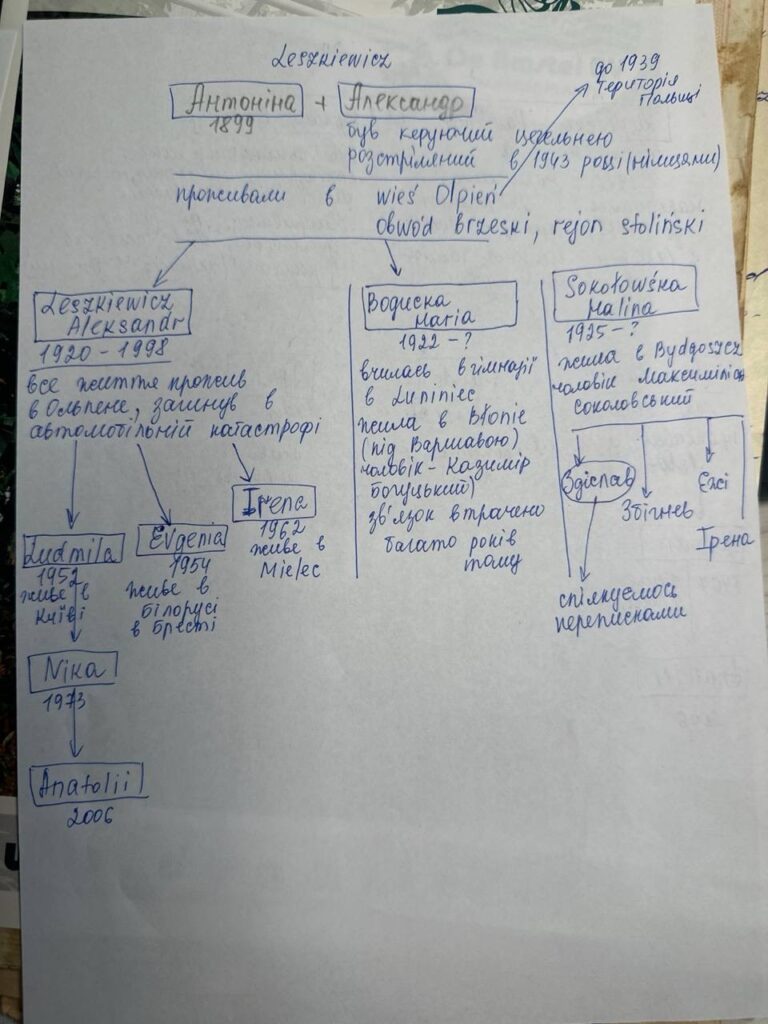 Leszkiewicz
до 1939
територія
Польщі
Антоніна + Александр
1899
був керуючий цегельнею
розстріляний в 1943 році (німцями)
проживали в wieś Olpień
obwód brzeski, rejon stoliński
Leszkiewicz
Aleksandr
1920 - 1998
все життя прожив
в Ольпене, загинув в
автомобільній катастрофі
Ludmila
1952
живе в
Києві
Evgenia
1954
живе в
Білорусі
в Бресті
Irena
1962
живе в
Mielec
Nika
1973
Anatolii
2006
Maria
1922 - ?
вчилась в гімназії
в Łuniniec
жила в Błonie
(під Варшавою)
чоловік - Казимір
Богуцький)
зв'язок втрачено
багато років
тому
Sokołowśka
Halina
1925 - ?
жила в Bydgoszcz
чоловік
соколовський
Здіслав
Збігнєв
Єжі
Ірена
спілкуємось
переписками